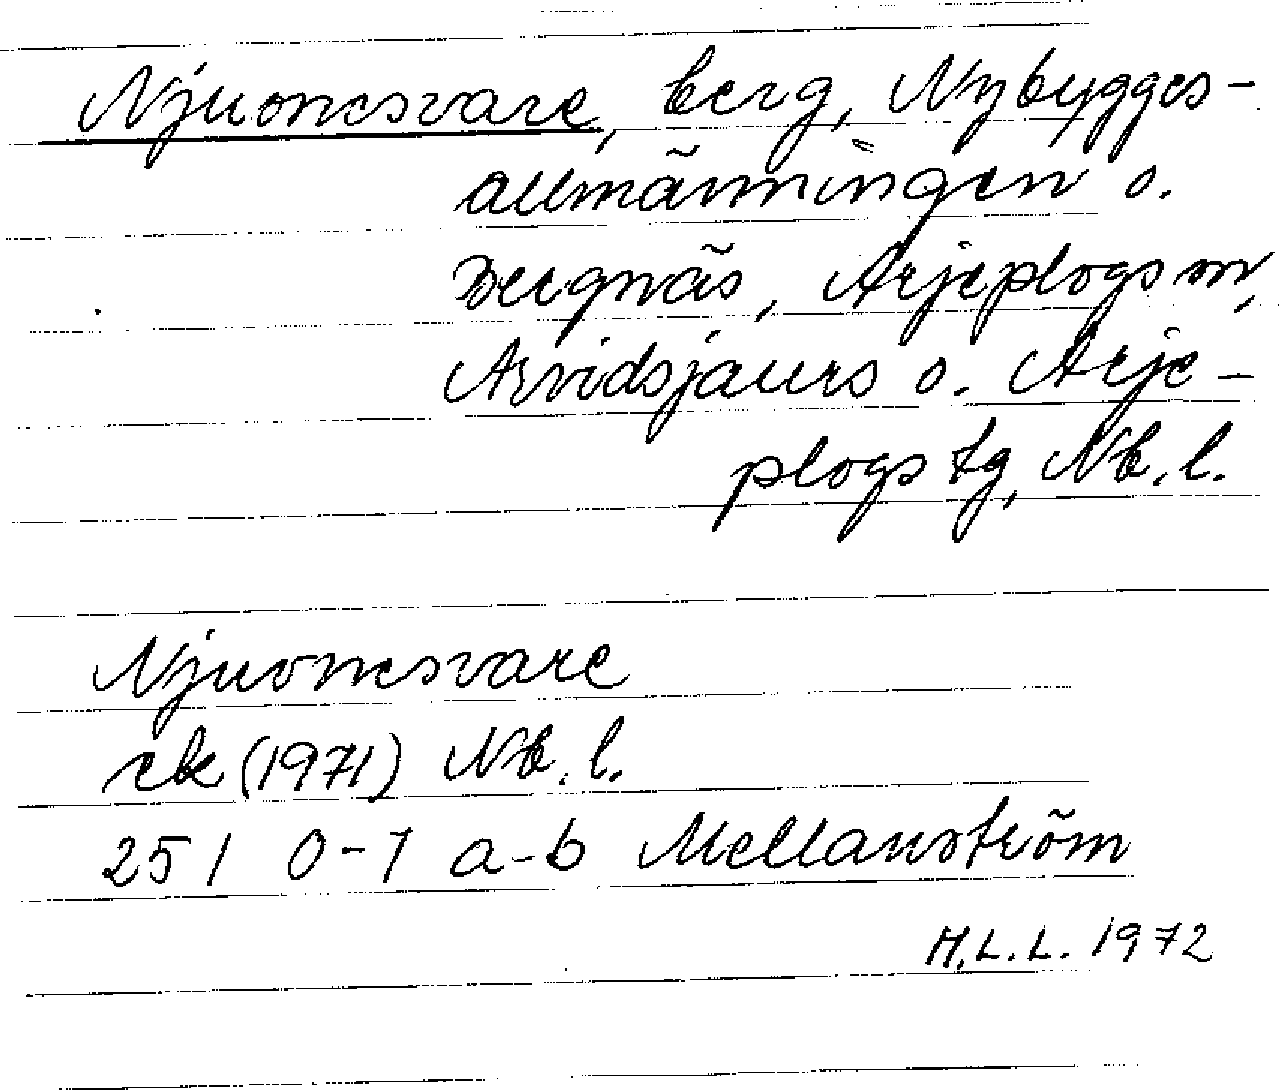 Njuonesvare, berg, Nybygges-
allmänningen o.
Bergnäs, Arjeplogs sn,
Arvidsjaurs o. Arje-
plogs tg, Nb. l.
Njuonesvare
ek (1971) Nb. l.
25 I 0-1 a-b Mellanström
H.L.L. 1972